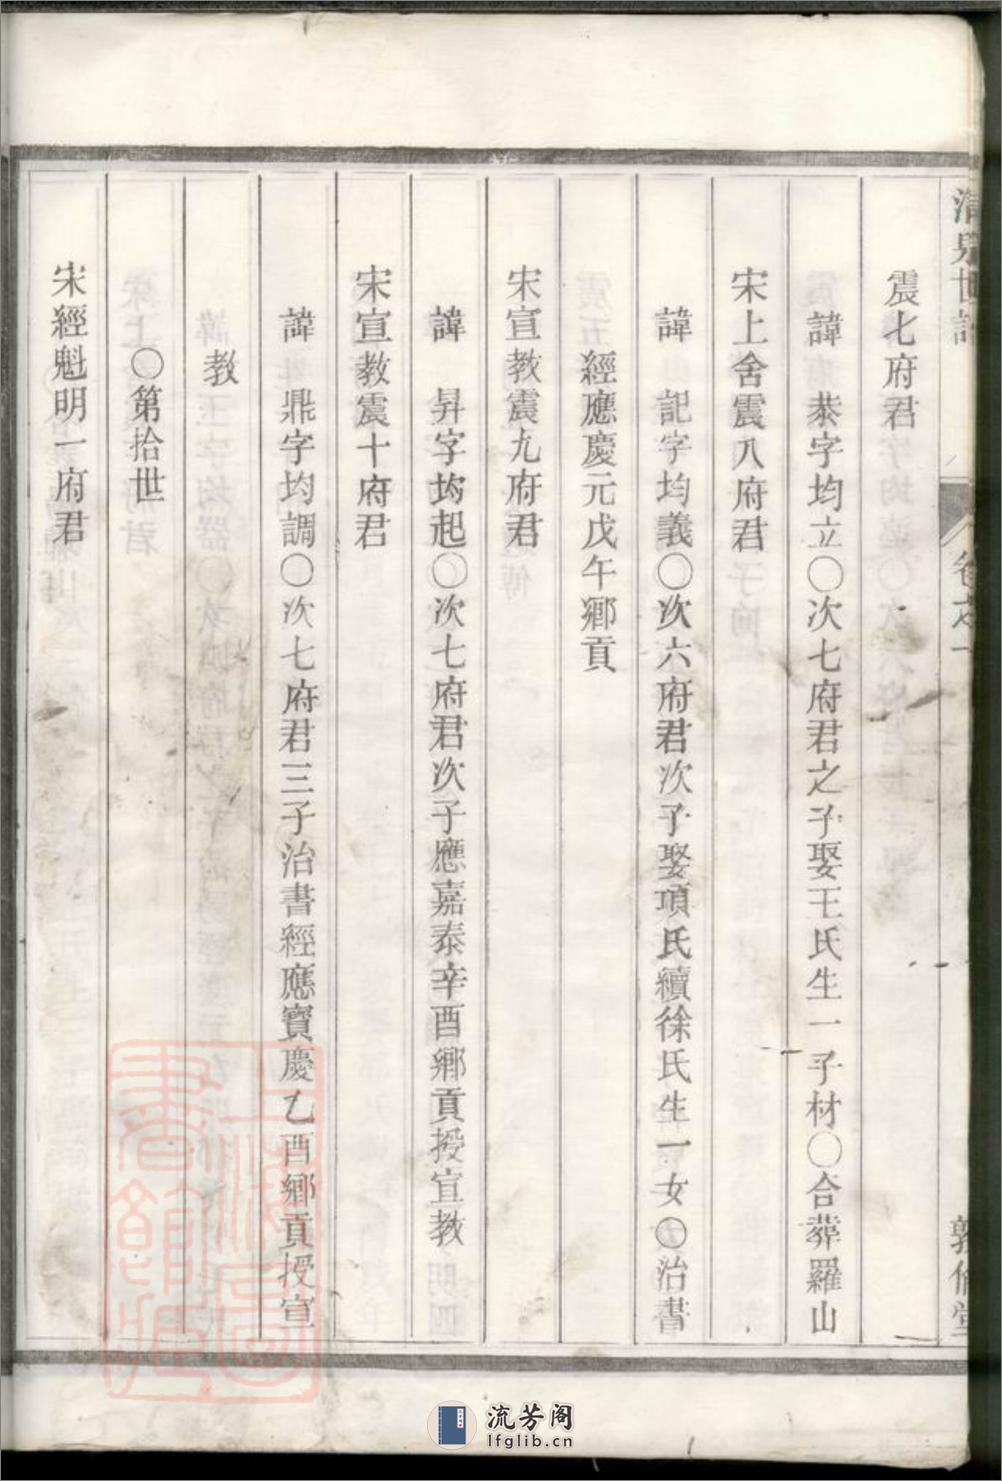 清泉世譜 卷之一 敦倫堂
震七府君
諱 恭字均立○次七府君之子娶王氏生一子材○合葬羅山
宋上舍震八府君
諱 記字均義○次六府君次子娶項氏續徐氏生一女○治書
經應慶元戊午鄉貢
宋宣教震九府君
諱 昇字均起○次七府君次子應嘉泰辛酉鄉貢授宣教
宋宣教震十府君
諱 鼎字均調○次七府君三子治書經應寶慶乙酉鄉貢授宣
教
○第拾世
宋經魁明一府君
上海圖書館藏
流芳阁
lfglib.cn